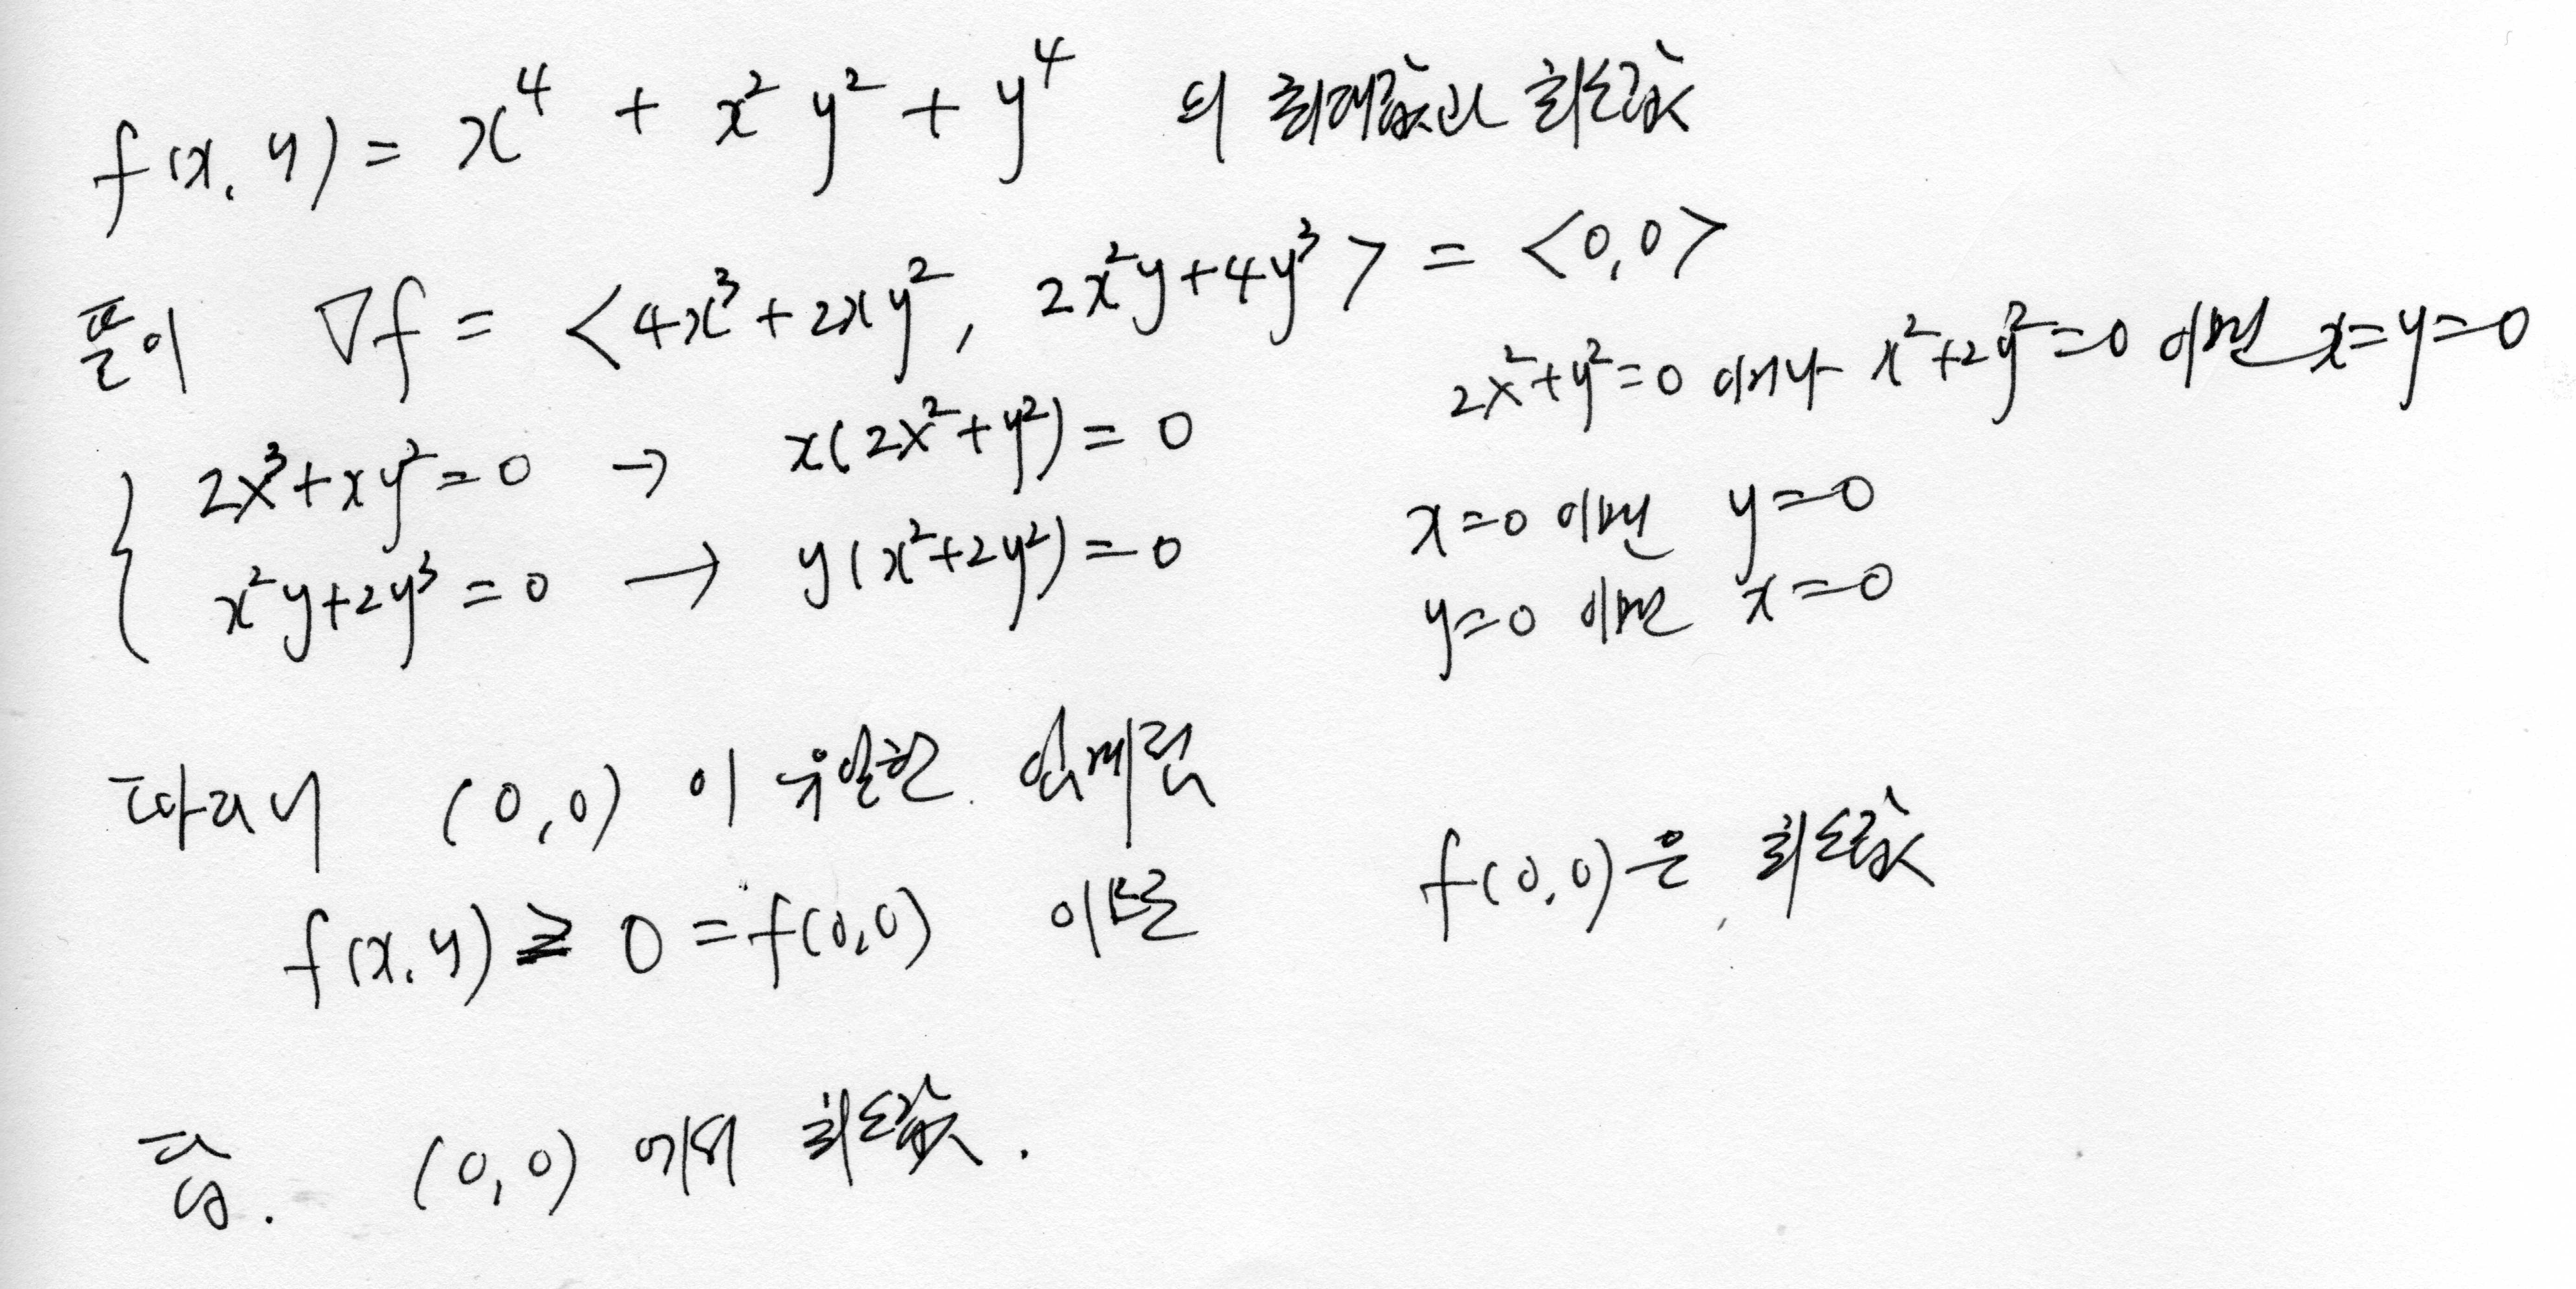 f(x, y) = x⁴ + x² y² + y⁴ 의 최대값과 최소값
풀이 ∇f = <4x³+2xy², 2x²y+4y³> = <0,0>
2x²+y²=0 이거나 x²+2y²=0 이면 x=y=0
{ 2x³+xy²=0 → x(2x²+y²)=0
x²y+2y³=0 → y(x²+2y²)=0
x=0 이면 y=0
y=0 이면 x=0
따라서 (0,0) 이 유일한 임계점
f(x,y) ≥ 0 = f(0,0) 이므로 f(0,0)은 최소값
답. (0,0) 에서 최소값.